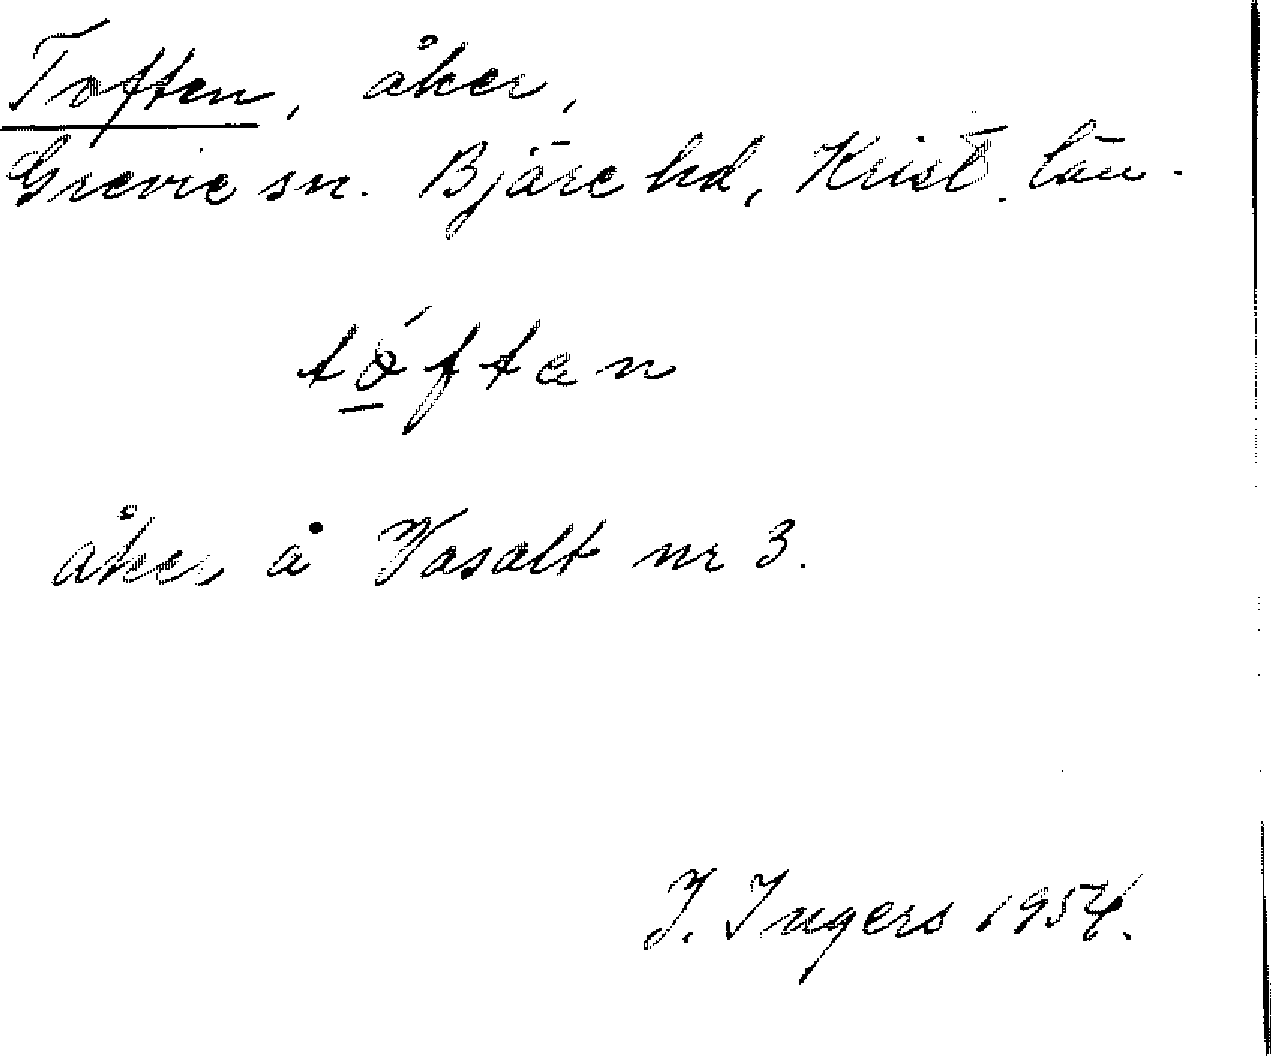 Toften, åker,
Grevie sn. Bjäre hd, Krist. län.
tóftan
åker å Vasalt nr 3.
I. Ingers 1954.